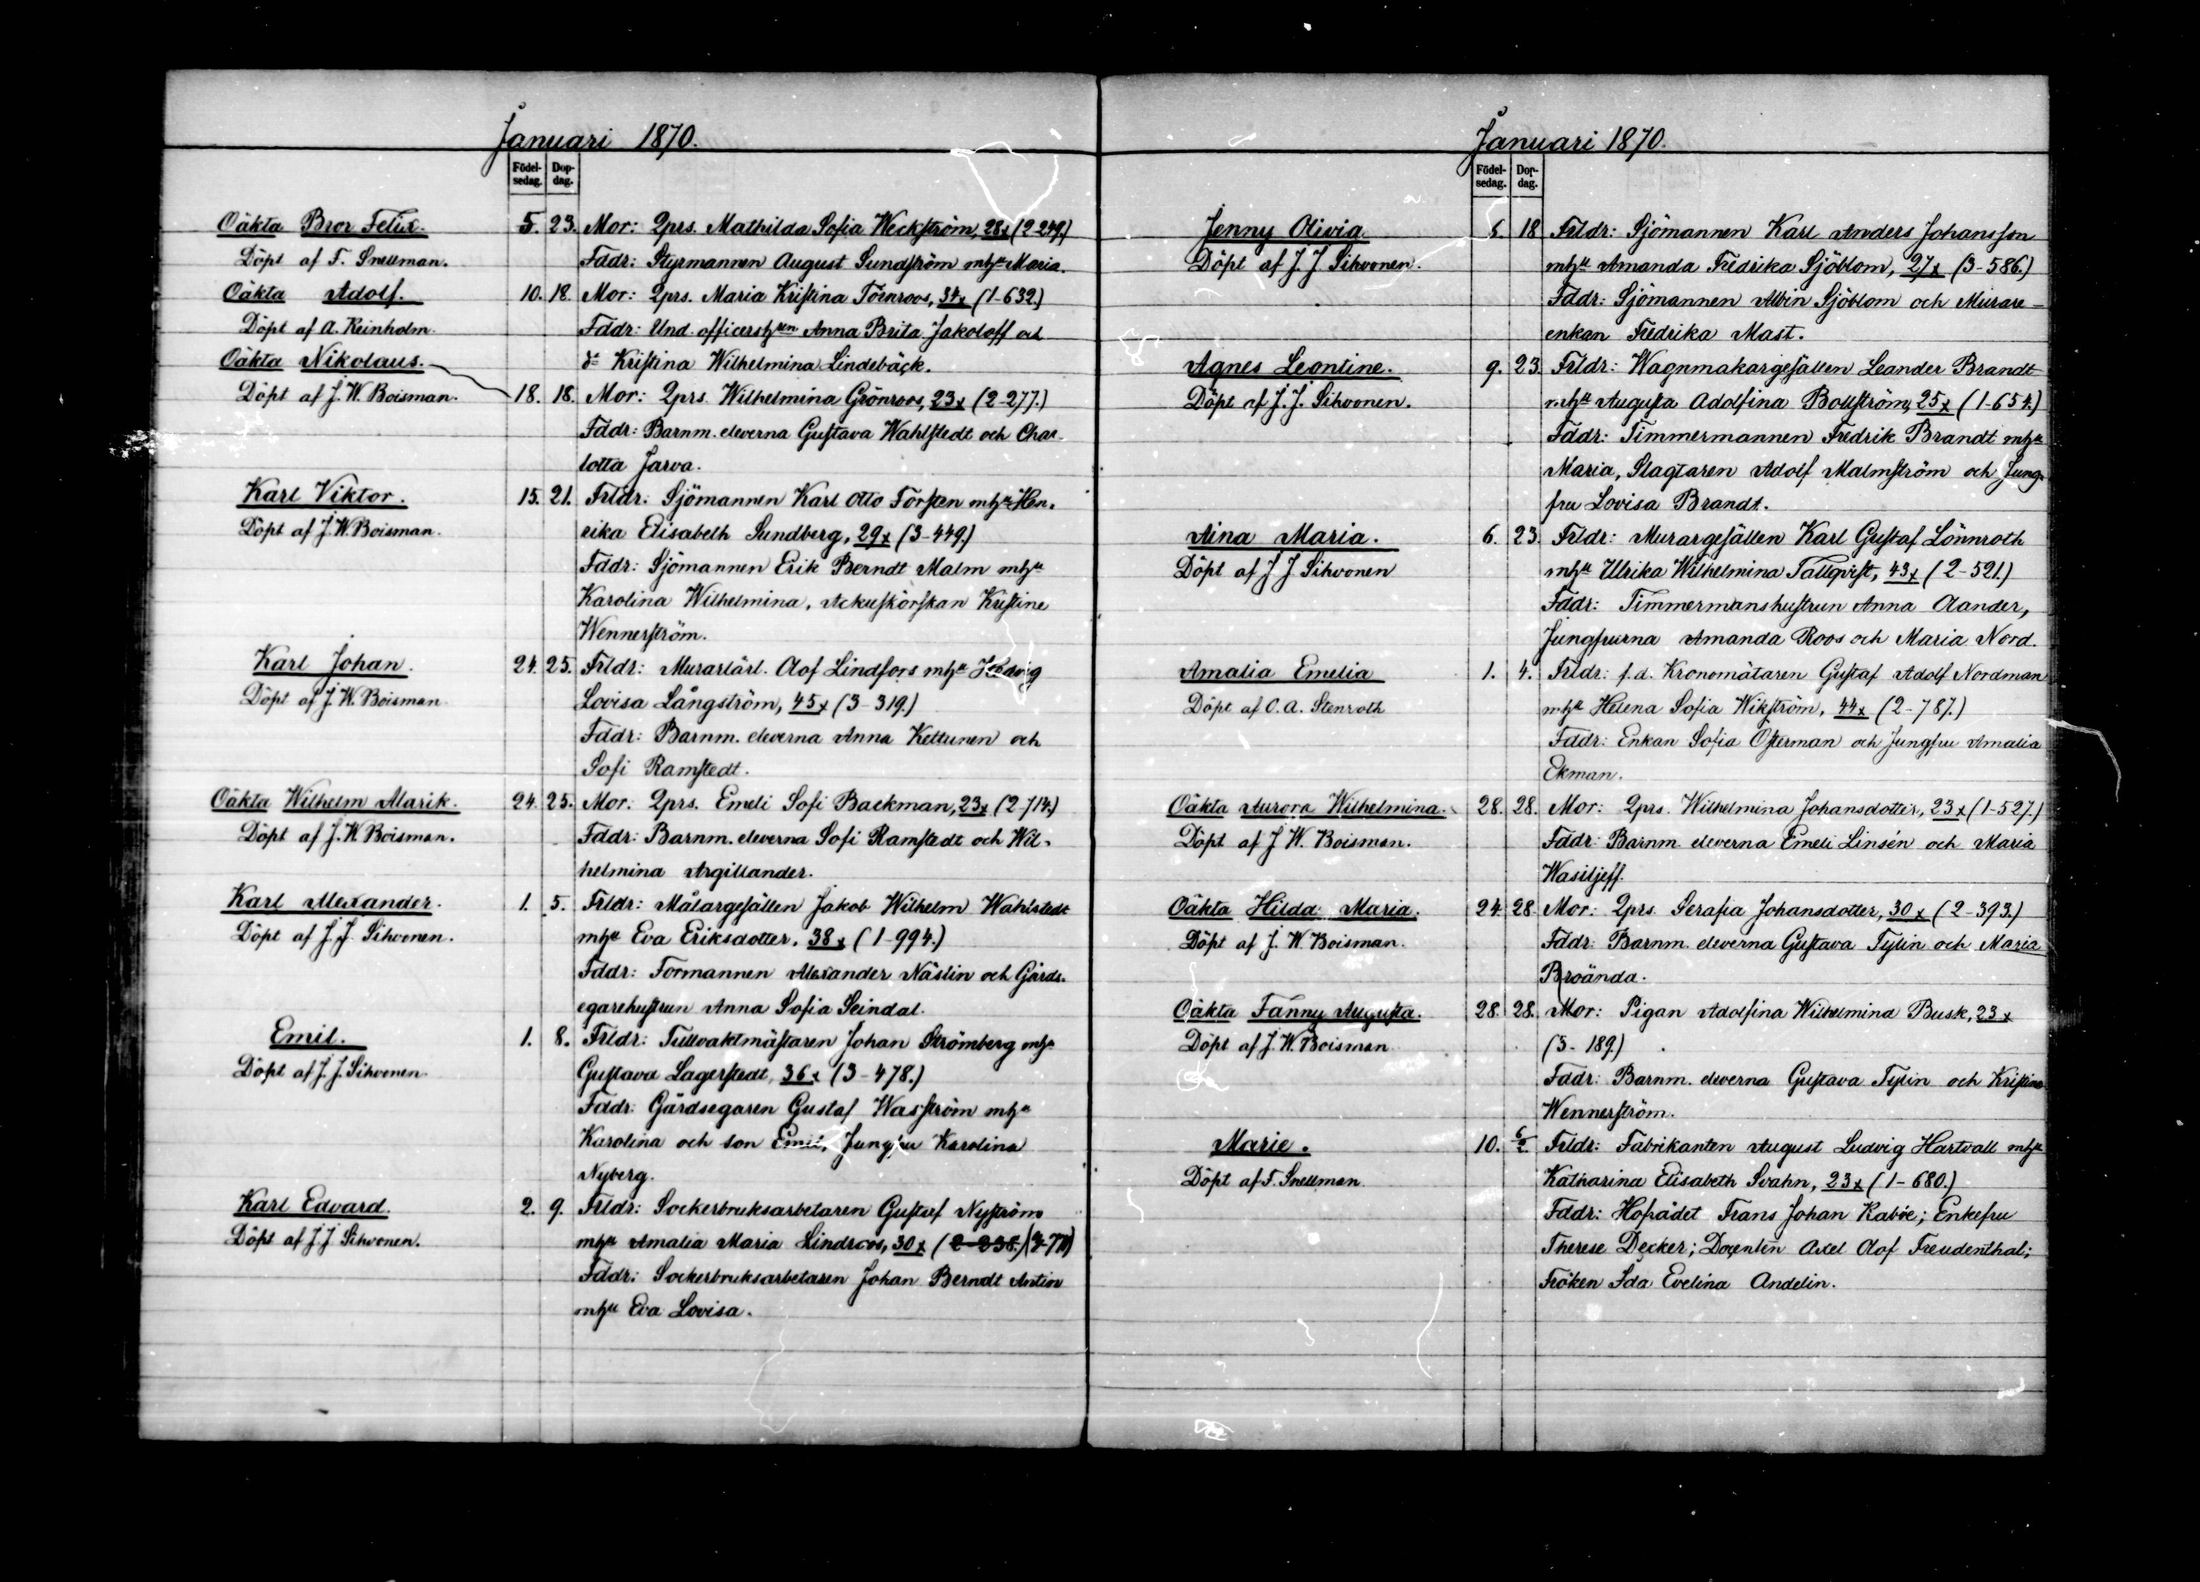 Januari 1870.
Födel-sedag. Dop-dag.
Oäkta Bror Felix. 5. 23. Mor: Qprs. Mathilda Sofia Weckström, 28 x (2-249.)
Döpt af F. Snellman. Fddr: Styrmannen August Sundström mhu Maria.
Oäkta Adolf. 10. 18. Mor: Qprs. Maria Kristina Törnroos, 34 x (1-632.)
Döpt af A. Reinholm. Fddr: Und. officershrun Anna Brita Jakoloff och
Oäkta Nikolaus. do Kristina Wilhelmina Lindebäck.
Döpt af J. W. Boisman. 18. 18. Mor: Qprs. Wilhelmina Grönroos, 23 x (2-277.)
Fddr: Barnm. eleverna Gustava Wahlstedt och Char-
lotta Jarva.
Karl Viktor. 15. 21. Frldr: Sjömannen Karl Otto Forsten mhu Hen-
Döpt af J. W. Boisman. rika Elisabeth Sundberg, 29 x (3-449.)
Fddr: Sjömannen Erik Berndt Malm mhu
Karolina Wilhelmina, Ackuskörskan Kristine
Wennerström.
Karl Johan. 24. 25. Frldr: Murarlärl. Olof Lindfors mhu Hedvig
Döpt af J. W. Boisman Lovisa Långström, 45 x (3-319.)
Fddr: Barnm. eleverna Anna Kettunen och
Sofi Ramstedt.
Oäkta Wilhelm Alarik. 24. 25. Mor: Qprs. Emeli Sofi Backman, 23 x (2-714.)
Döpt af J. W. Boisman. Fddr: Barnm. eleverna Sofi Ramstedt och Wil-
helmina Argillander.
Karl Alexander. 1. 5. Frldr: Målargesällen Jakob Wilhelm Wahlstedt
Döpt af J. J. Sihvonen. mhu Eva Eriksdotter, 38 x (1-994.)
Fddr: Formannen Alexander Näslin och Gårds-
egarehustrun Anna Sofia Seindal.
Emil. 1. 8. Frldr: Tullvaktmästaren Johan Strömberg mhu
Döpt af J. J. Sihvonen. Gustava Lagerstedt, 36 x (3-478.)
Fddr: Gårdsegaren Gustaf Wasström mhu
Karolina och son Emil, Jungfru Karolina
Nyberg.
Karl Edvard. 2. 9. Frldr: Sockerbruksarbetaren Gustaf Nyström
Döpt af J. J. Sihvonen. mhu Amalia Maria Lindroos, 30 x (2-238.)
Fddr: Sockerbruksarbetaren Johan Berndt Antin
mhu Eva Lovisa.
Januari 1870.
Födel-sedag. Dop-dag.
Jenny Olivia 6. 18 Frldr: Sjömannen Karl Anders Johansson
Döpt af J. J. Sihvonen. mhu Amanda Fredrika Sjöblom, 27 x (3-586.)
Fddr: Sjömannen Albin Sjöblom och Murare-
enkan Fredrika Mast.
Agnes Leontine. 9. 23. Frldr: Wagnmakargesällen Leander Brandt
Döpt af J. J. Sihvonen. mhu Augusta Adolfina Bollström, 25 x (1-654.)
Fddr: Timmermannen Fredrik Brandt mhu
Maria, Slagtaren Adolf Malmström och Jung-
fru Lovisa Brandt.
Aina Maria. 6. 23. Frldr: Murargesällen Karl Gustaf Lönnroth
Döpt af J. J. Sihvonen mhu Ulrika Wilhelmina Tallqvist, 43 x (2-521.)
Fddr: Timmermanshustrun Anna Oander,
Jungfrurna Amanda Roos och Maria Nord.
Amalia Emelia 1. 4. Frldr: f.d. Kronomätaren Gustaf Adolf Nordman
Döpt af O. A. Stenroth mhu Helena Sofia Wikström, 44 x (2-787.)
Fddr: Enkan Sofia Osterman och Jungfru Amalia
Ekman.
Oäkta Aurora Wilhelmina. 28. 28. Mor: Qprs. Wilhelmina Johansdotter, 23 x (1-527.)
Döpt af J. W. Boisman. Fddr: Barnm. eleverna Emeli Linsén och Maria
Wasiljeff.
Oäkta Hilda Maria. 24. 28. Mor: Qprs. Serafia Johansdotter, 30 x (2-393.)
Döpt af J. W. Boisman. Fddr: Barnm. eleverna Gustava Tylin och Maria
Broända.
Oäkta Fanny Augusta. 28. 28. Mor: Pigan Adolfina Wilhelmina Busk, 23 x
Döpt af J. W. Boisman (3-189.)
Fddr: Barnm. eleverna Gustava Tylin och Kristina
Wennerström.
Marie. 10. 6/2 Frldr: Fabrikanten August Ludvig Hartvall mhu
Döpt af F. Snellman. Katharina Elisabeth Svahn, 23 x (1-680.)
Fddr: Hofrådet Frans Johan Rabbe; Enkefru
Therese Decker; Docenten Axel Olof Freudenthal;
Fröken Ida Evelina Andelin.